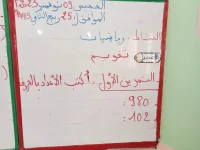 الخميس 09 نوفمبر 2023
الموافق لـ 25 ربيع الثاني 1445
النشاط: رياضيات
تقويم
التمرين الأول: أكتب الأعداد بالحروف
980:
102: